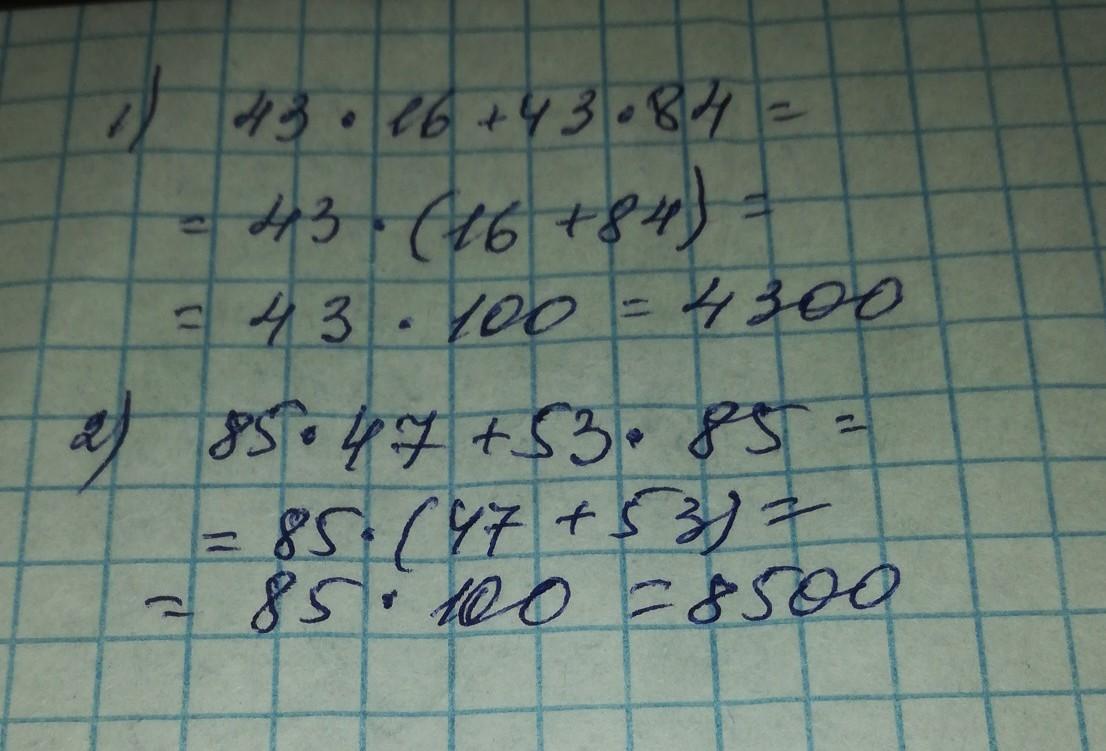 1) 43 · 16 + 43 · 84 =
= 43 · (16 + 84) =
= 43 · 100 = 4300
2) 85 · 47 + 53 · 85 =
= 85 · (47 + 53) =
= 85 · 100 = 8500